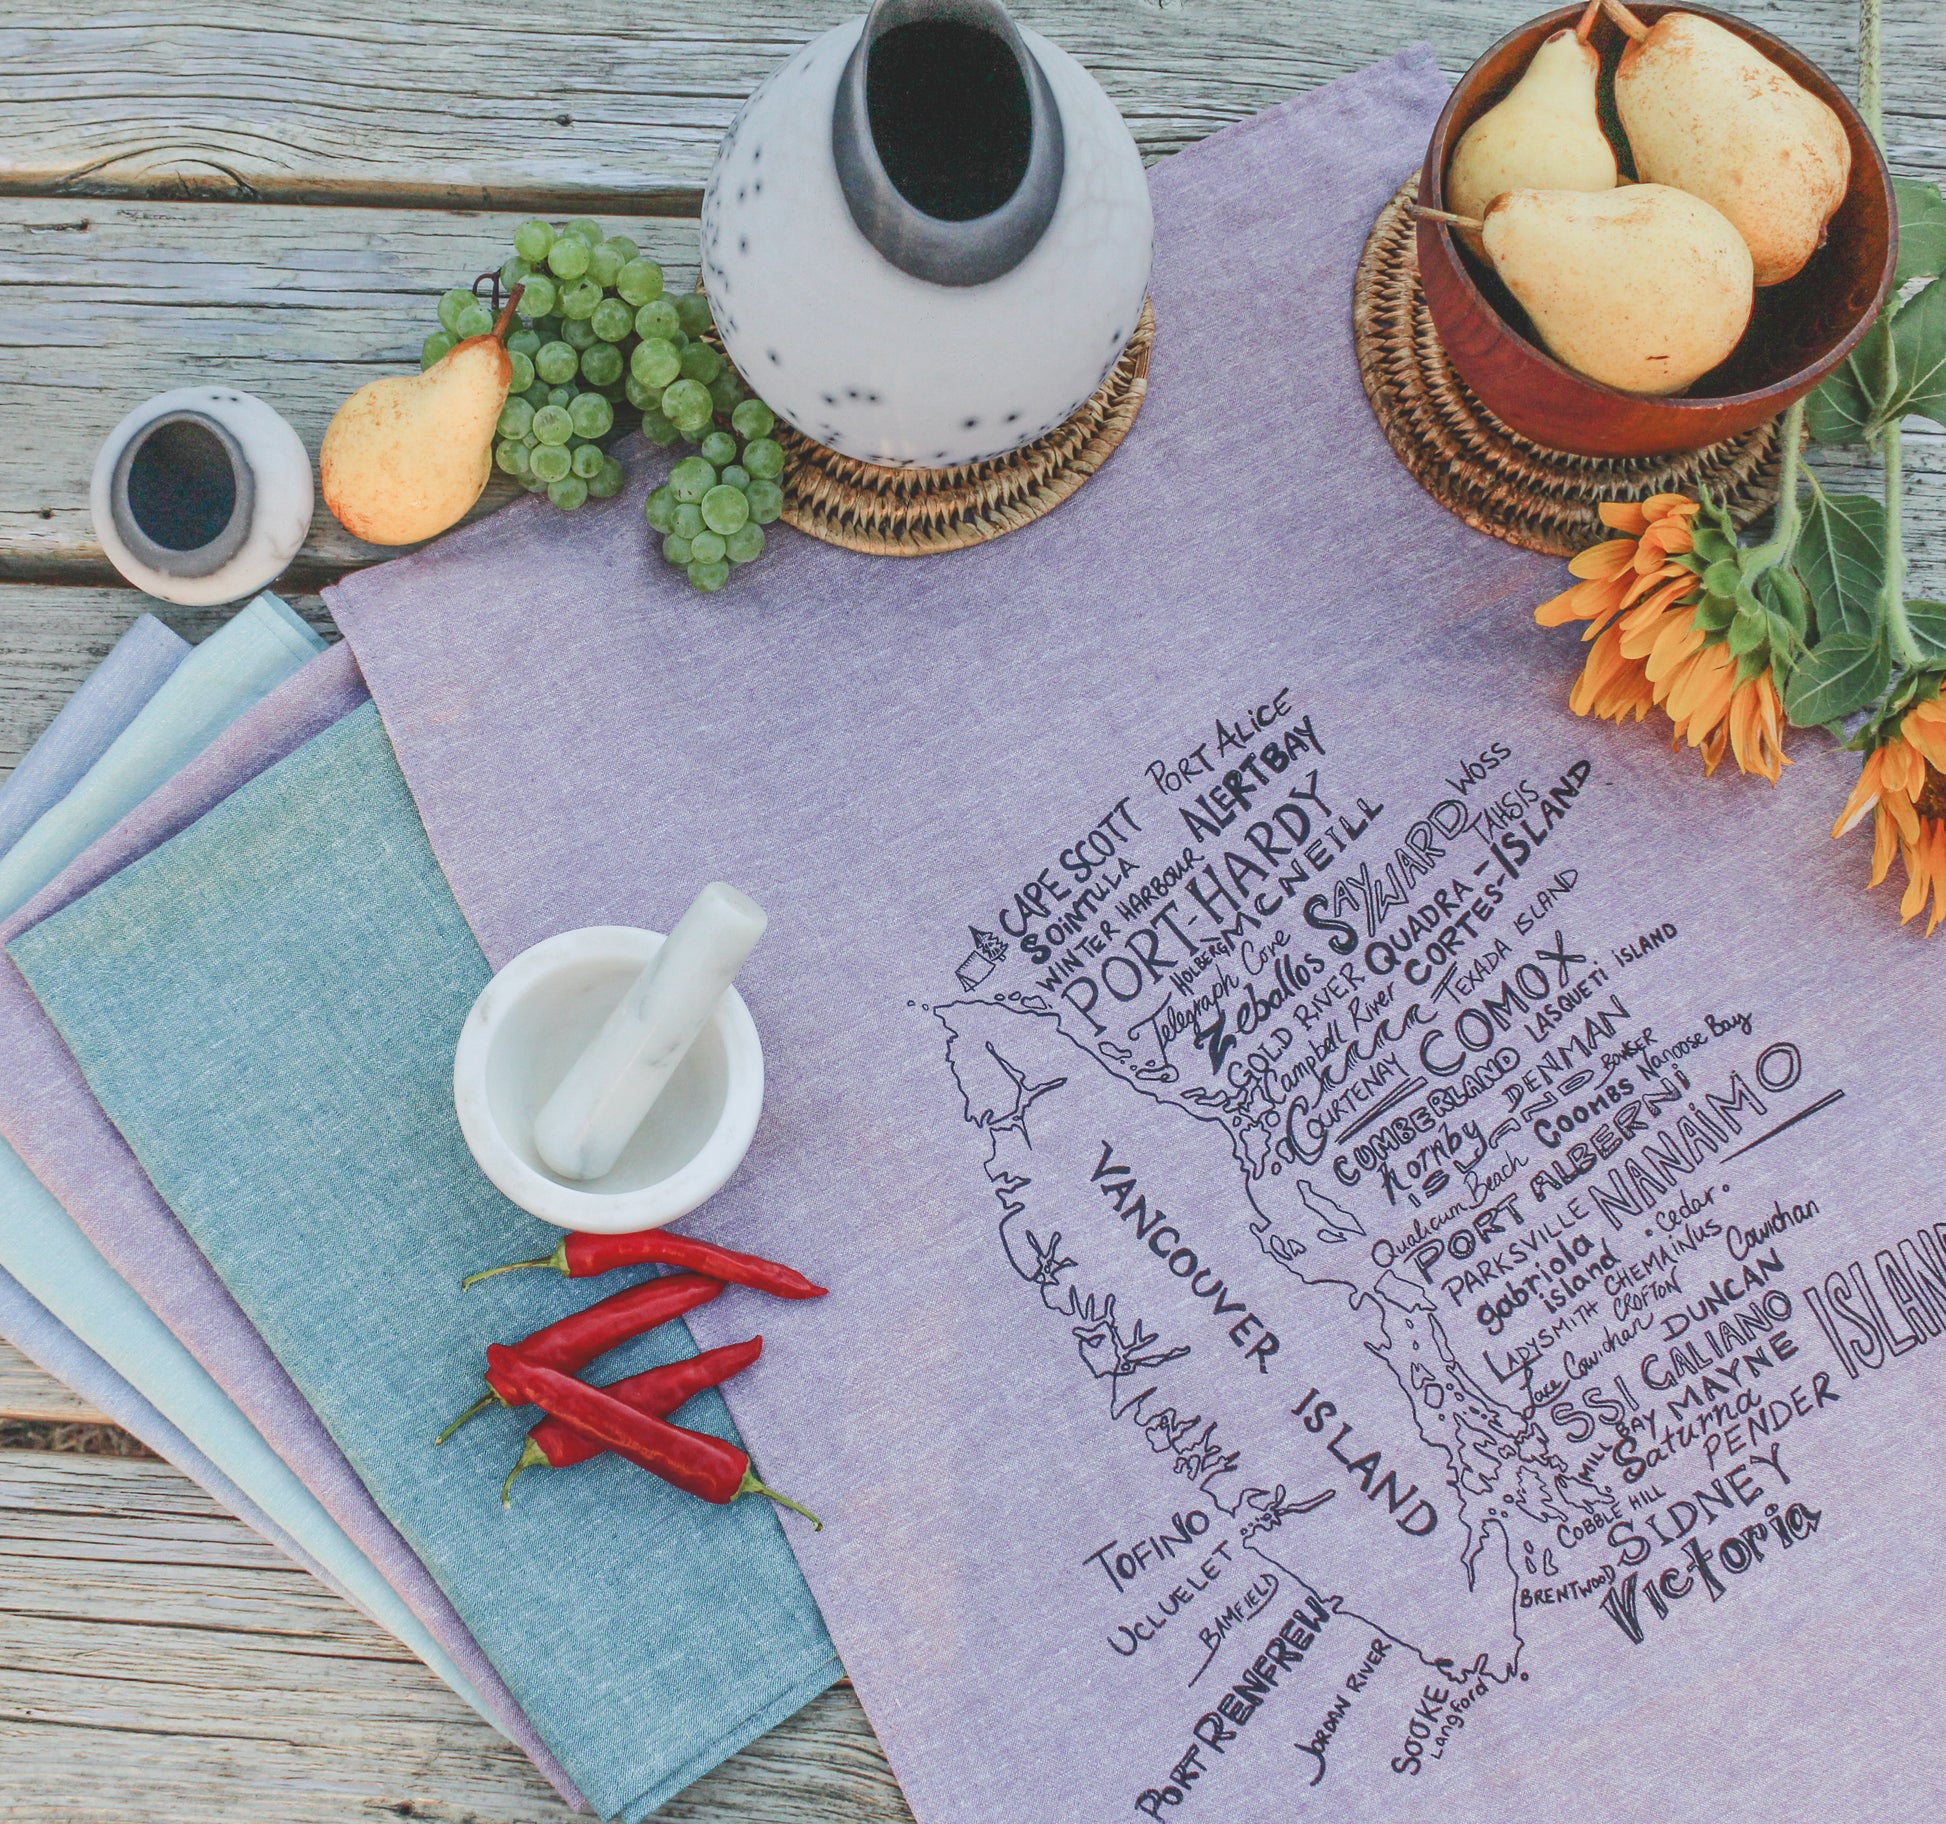 PORT ALICE
CAPE SCOTT
ALERT BAY
SOINTULLA
WINTER HARBOUR
PORT-HARDY
HOLBERG
MCNEILL
WOSS
Telegraph Cove
SAYWARD
TAHSIS
Zeballos
QUADRA-
CORTES-ISLAND
GOLD RIVER
Campbell River
TEXADA ISLAND
COURTENAY
COMOX
CUMBERLAND
LASQUETI ISLAND
hornby
DENMAN
ISLAND
BOWSER
Qualicum Beach
COOMBS
Nanoose Bay
PORT ALBERNi
PARKSVILLE
NANAiMO
gabriola
island
• Cedar •
LADYSMITH
CHEMAINUS
Cowichan
CROFTON
Lake Cowichan
DUNCAN
SSI
GALIANO
ISLAND
MILL BAY
MAYNE
Saturna
PENDER
COBBLE HILL
SIDNEY
BRENTWOOD
Victoria
VANCOUVER ISLAND
TOFINO
UCLUELET
BAMFIELD
PORT RENFREW
JORDAN RIVER
SOOKE
Langford